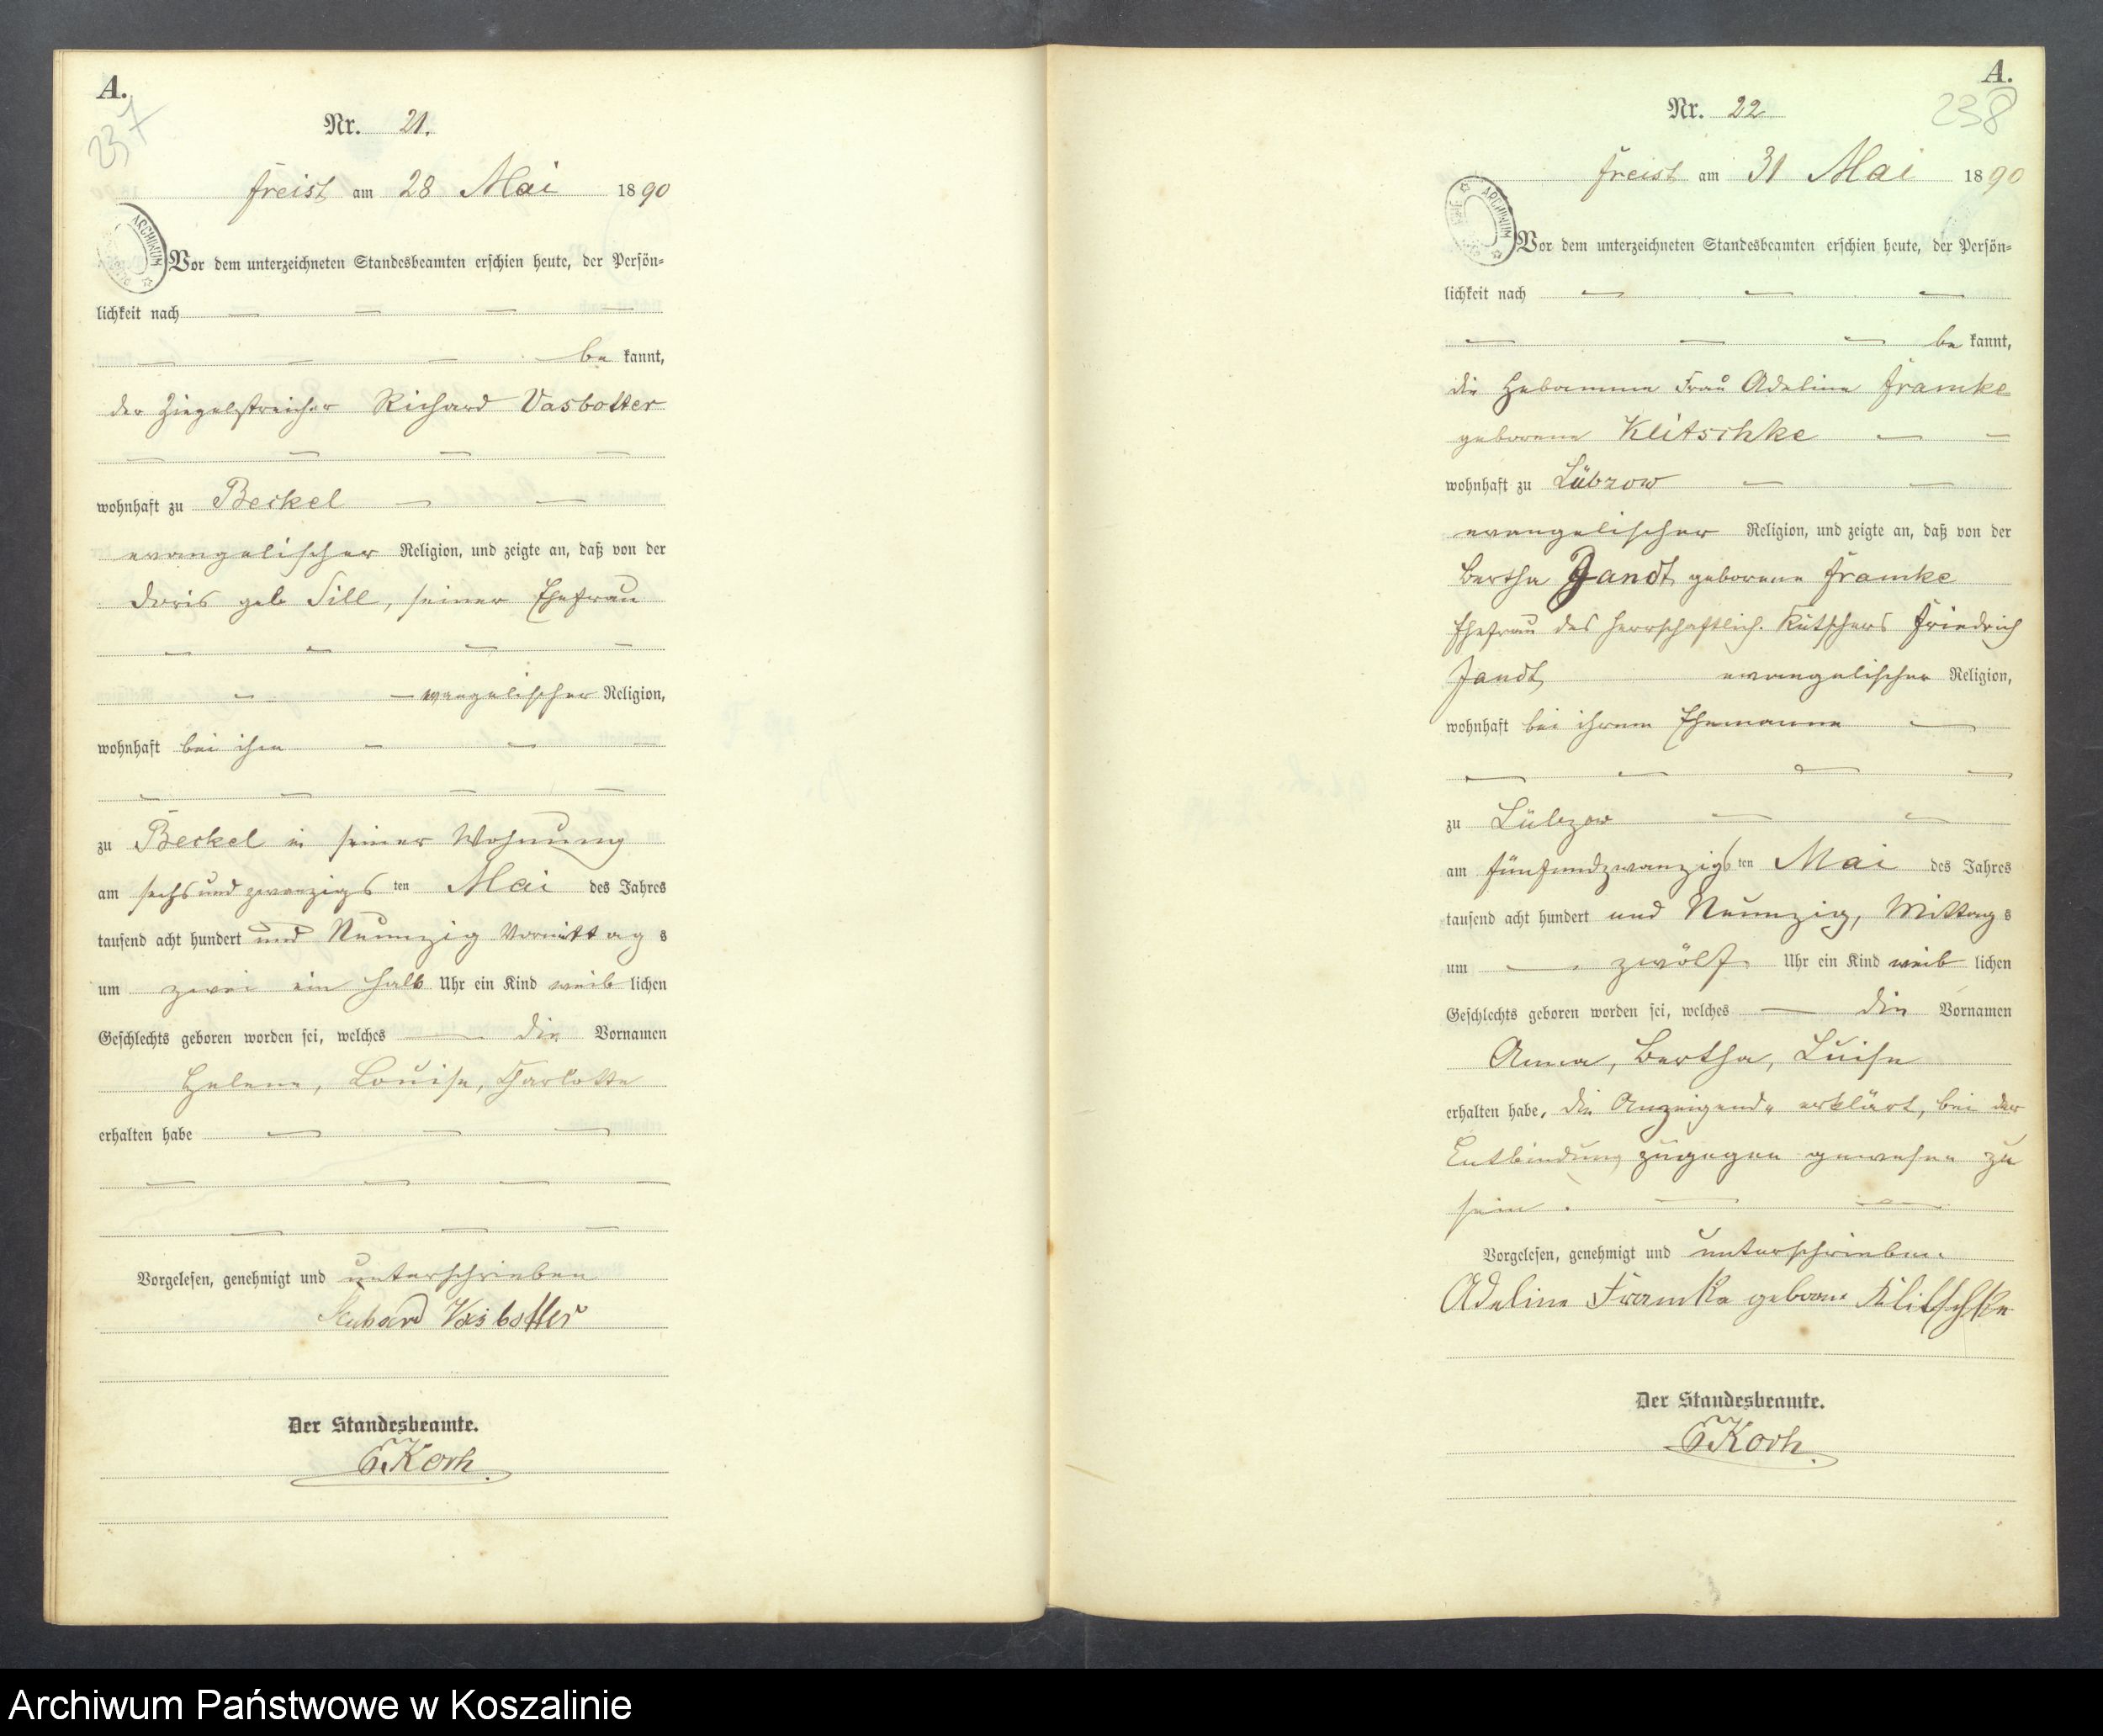 A.
237
Nr. 21.
Freist am 28 Mai 1890
ARCHIWUM
Vor dem unterzeichneten Standesbeamten erschien heute, der Persön=
lichkeit nach
be kannt,
der Ziegelstreicher Richard Vasbotter
wohnhaft zu Beckel
evangelischer Religion, und zeigte an, daß von der
Doris geb Sill, seiner Ehefrau
evangelischer Religion,
wohnhaft bei ihm
zu Beckel in seiner Wohnung
am sechsundzwanzigs ten Mai des Jahres
tausend acht hundert und Neunzig Vormittag s
um zwei ein halb Uhr ein Kind weib lichen
Geschlechts geboren worden sei, welches die Vornamen
Helene, Louise, Charlotte
erhalten habe
Vorgelesen, genehmigt und unterschrieben
Richard Vasbotter
Der Standesbeamte.
Koch.
A.
238
Nr. 22
Freist am 31 Mai 1890
ARCHIWUM
Vor dem unterzeichneten Standesbeamten erschien heute, der Persön=
lichkeit nach
be kannt,
die Hebamme Frau Adeline Framke
geborene Klitschke
wohnhaft zu Lübzow
evangelischer Religion, und zeigte an, daß von der
Bertha Jandt geborene Framke
Ehefrau des herrschaftlich. Kutschers Friedrich
Jandt evangelischer Religion,
wohnhaft bei ihrem Ehemanne
zu Lübzow
am fünfundzwanzigs ten Mai des Jahres
tausend acht hundert und Neunzig, Mittag s
um zwölf Uhr ein Kind weib lichen
Geschlechts geboren worden sei, welches die Vornamen
Anna, Bertha, Luise
erhalten habe, die Anzeigende erklärt, bei der
Entbindung zugegen gewesen zu
sein.
Vorgelesen, genehmigt und unterschrieben.
Adeline Framke geborne Klitschke
Der Standesbeamte.
Koch.
Archiwum Państwowe w Koszalinie